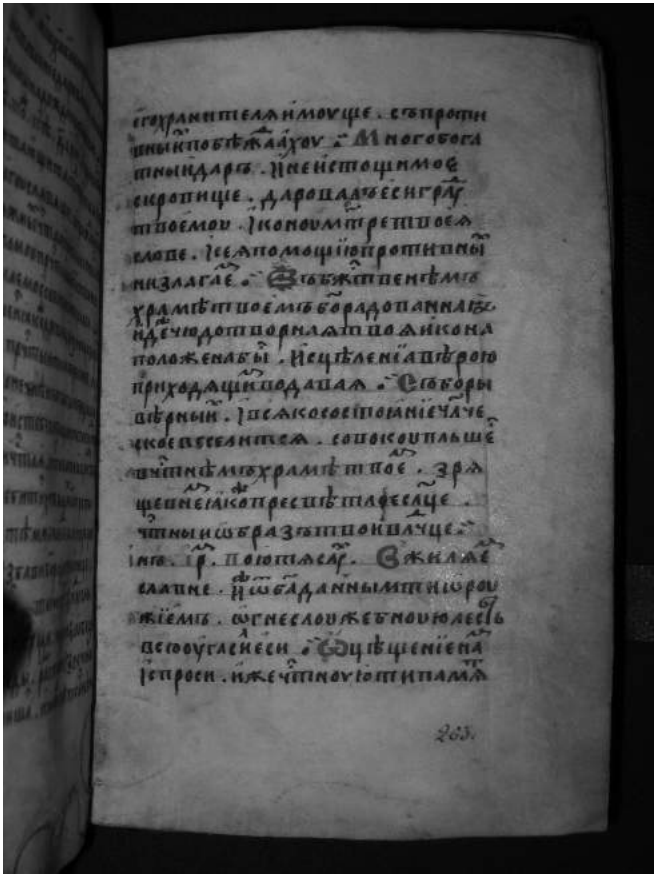 его хранителя имоуще . съпроти
вныи побѣжаахоу . Многобога
тныи даръ . И неистощимое
скровище . даровалъ еси гра҃
твоемоу . Iконоу мт҃ре твоея
слове . Iсея помощiю противны
низлагае . Въ бжт҃венѣмъ
храмѣ твоемъ бг҃орадованная
идеже чюдотворная твоя икона
положена бы . Исцѣленiа вѣрою
приходящи подавая . Съборы
вѣрныи . Iвсяко состоянiе чл҃че
ское веселится . совокоупльше
в чт҃нѣмъ храмѣ твое . зря
ще в не яко пресвѣтла сл҃це .
чт҃ныи ѡбразъ твои вл҃чце .
Пою тя са .
славне . И ѿ ба данным ти ѡроу
жiемъ . ѡгнеслоужебноую лесть
всю оугаси еси . Ѡцѣщенiе на
Iспроси . иже чт҃ноую ти памя
263.